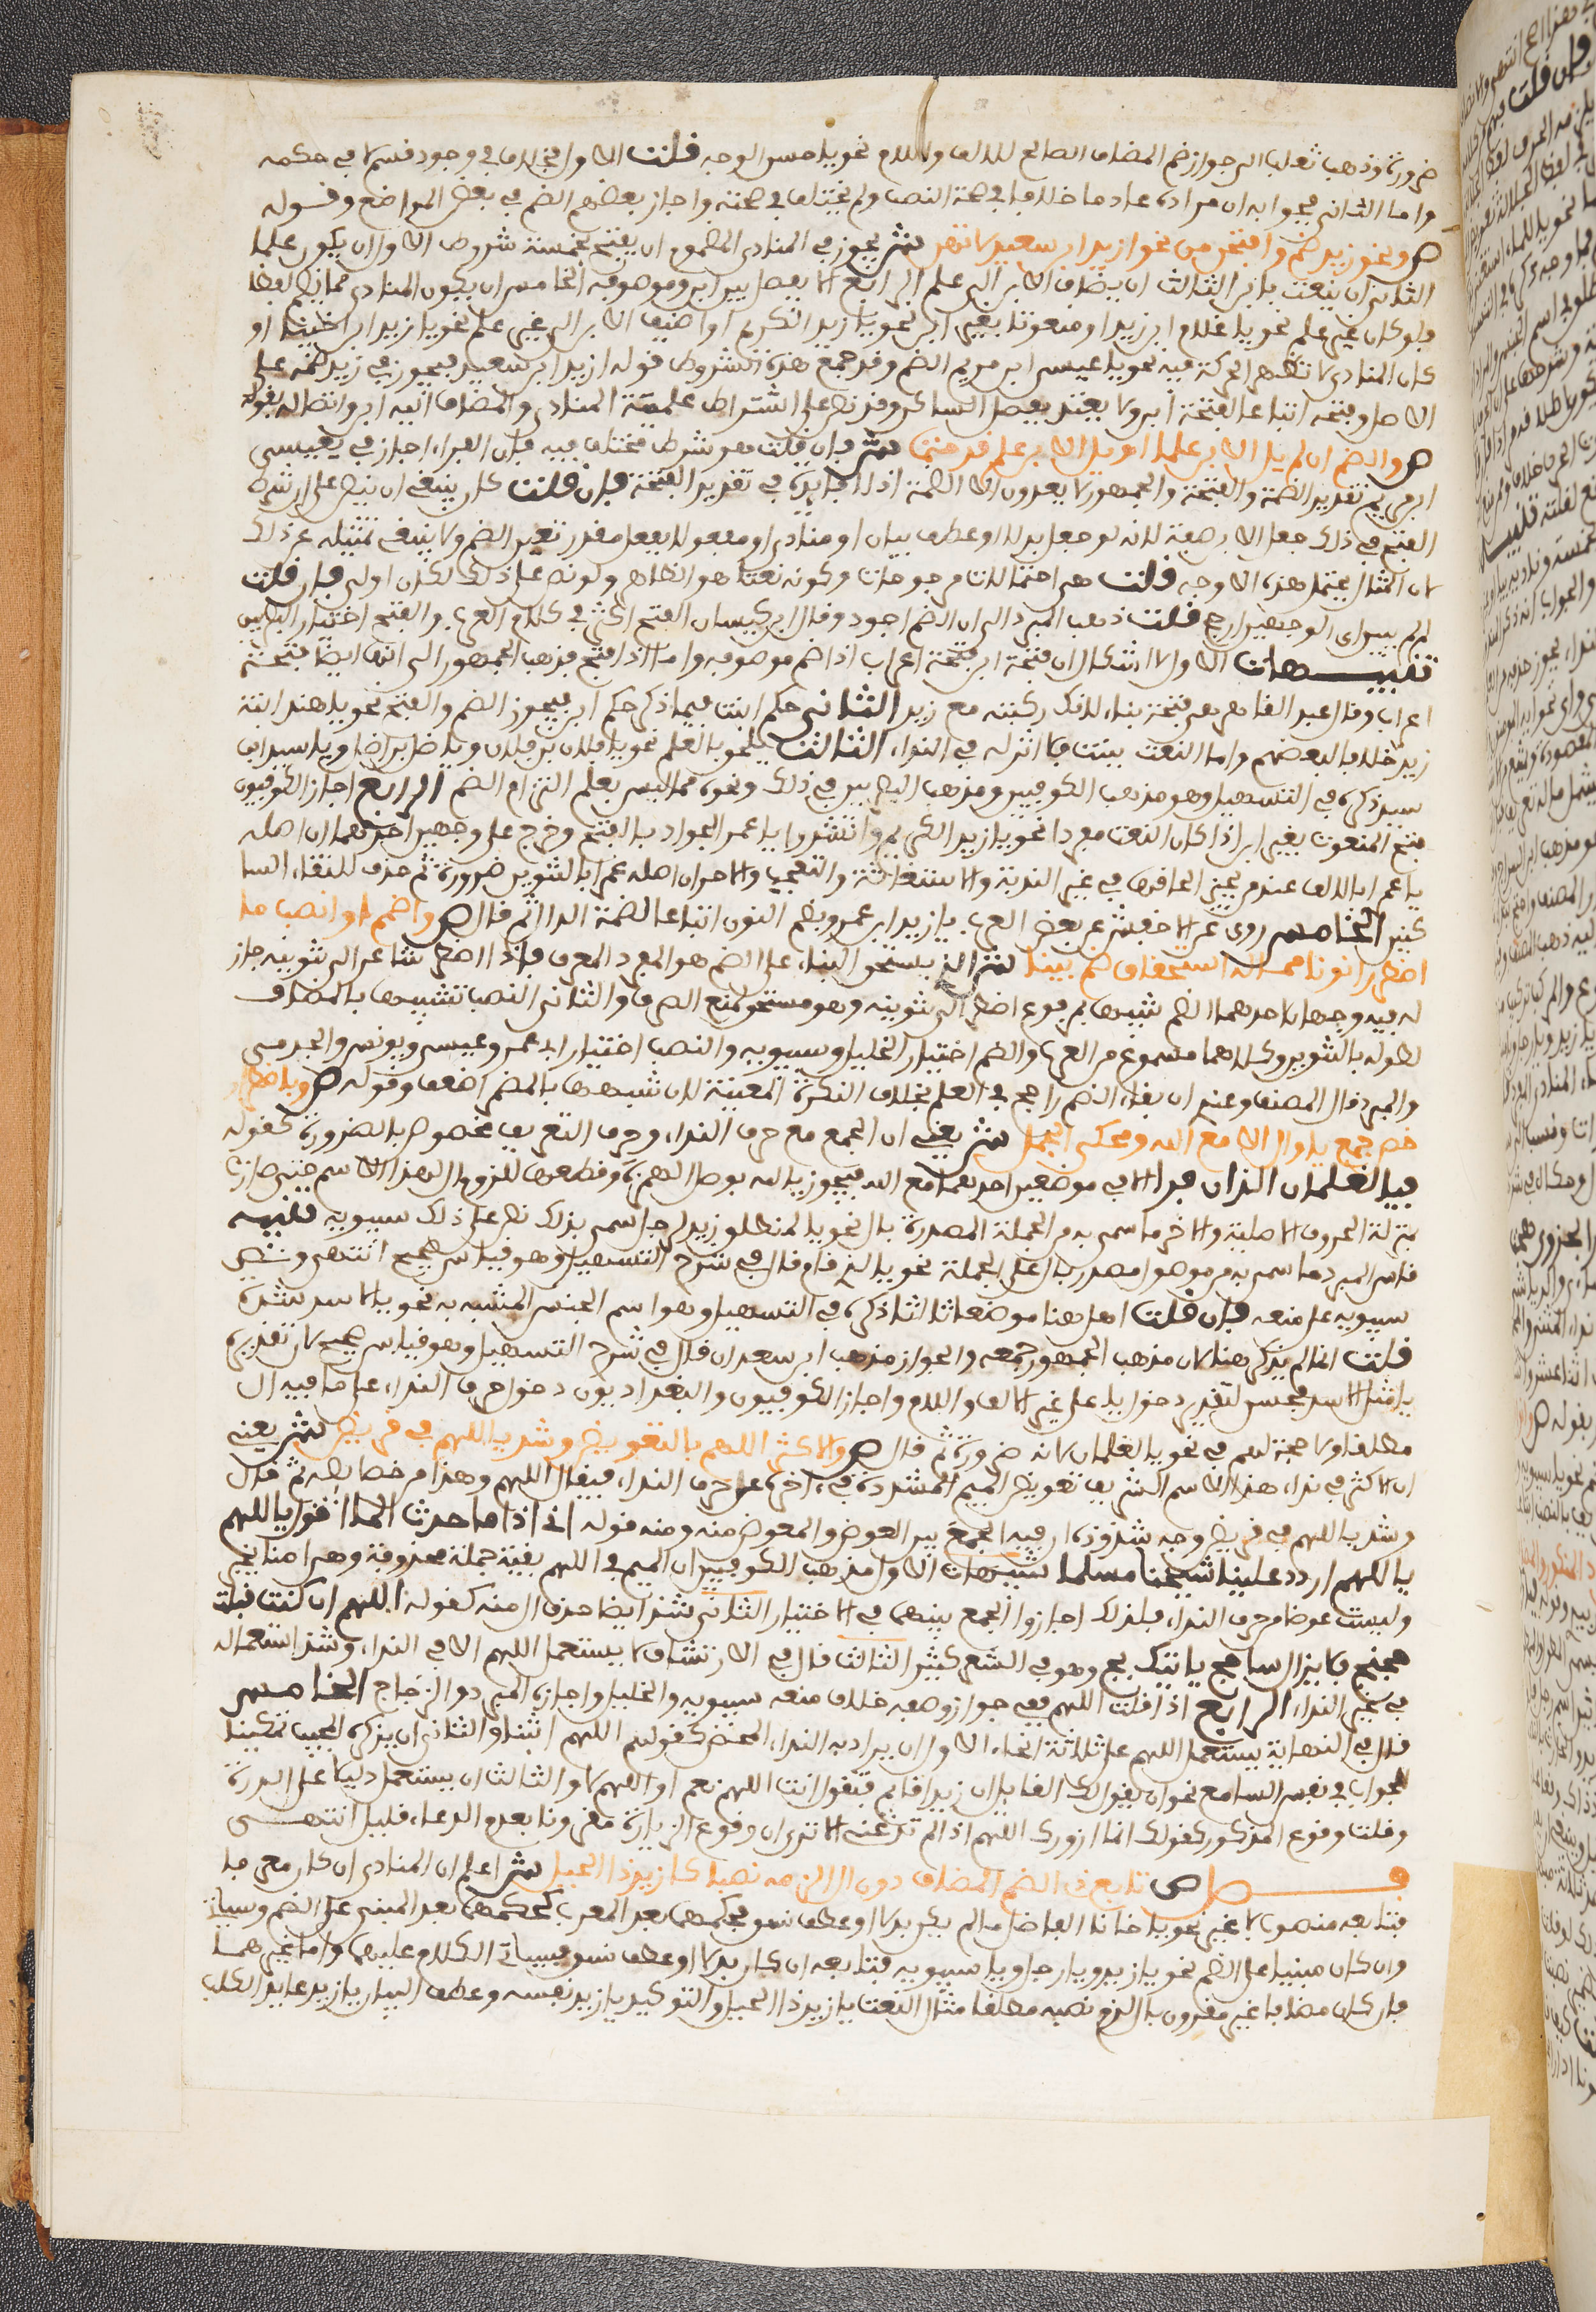 ضرورة وذهب ثعلب الى جواز ضم المضاف الصالح للالف واللام نحو يا حسن الوجه قلت الاول في خلاف في وجود قسم لا في حكمه
واما الثاني فجوابه ان مراده عادما خلافا في صحة النصب ولم يختلف في صحته واجاز بعضهم الضم في بعض المواضع وقوله
ص ونحو زيد ضم وافتحن من نحو ازيد ابن سعيد لا تهن ش يجوز في المنادى المضموم ان يفتح بخمسة شروط الاول ان يكون علما
الثاني ان ينعت بابن الثالث ان يضاف الابن الى علم الرابع الا يفصل بين ابن وموصوفه الخامس ان يكون المنادى مما يضم لفظا
فلو كان غير علم نحو يا غلام ابن زيد او منعوتا بغير ابن نحو يا زيد الكريم او اضيف الابن الى غير علم نحو يا زيد ابن اخينا او
كان المنادى لا تظهر الحركة فيه نحو يا عيسى ابن مريم تعين الضم وقد جمع هذه الشروط قوله ازيد ابن سعيد فيجوز في زيد ضمه على
الاصل وفتحه اتباعا لفتحة ابن ولا يعتد بفصل الساكن وقد نص على اشتراط علمية المنادى والمضاف اليه ابن واتصاله بقوله
ص والضم ان لم يل الابن علما او يل الابن علم قد حتما ش فان قلت هو شرط مختلف فيه فان الفراء اجاز في يعيسى
ابن مريم تقدير الضمة والفتحة والجمهور لا يقدرون الا الضمة اذ لا فايدة في تقدير الفتحة فان قلت كان ينبغي ان ينص على ان شرط
الفتح في ذلك جعل الابن صفة لانه لو جعل بدلا او عطف بيان او منادى او مفعولا بفعل مقدر تعين الضم ولا ينبغي تمثيله عن ذلك
لان المثال يحتمل هذه الاوجه قلت هي احتمالات مرجوحات وكونه نعتا هو الظاهر ولو نص على ذلك لكان اولى فان قلت
لم لم يبين اي الوجهين ارجح قلت ذهب المبرد الى ان الضم اجود وقال ابن كيسان الفتح اكثر في كلام العرب والفتح اختيار البصريين
تنبيهات الاول لا اشكال ان فتحة ابن فتحة اعراب اذا ضم موصوفه واما اذا فتح فذهب الجمهور الى انها ايضا فتحة
اعراب وقال عبد القاهر هي فتحة بناء لانك ركبته مع زيد الثاني حكم ابنت فيما ذكر حكم ابن فيجوز الضم والفتح نحو يا هند ابنة
زيد خلافا لبعضهم واما النعت ببنت فلا اثر له في النداء الثالث يلحق بالعلم نحو يا فلان بن فلان ويا ضل بن ضل ويا سيد ابن
سيد ذكره في التسهيل وهو مذهب الكوفيين ومذهب البصريين في ذلك ونحوه مما ليس بعلم التزام الضم الرابع اجاز الكوفيون
فتح المنعوت بغير ابن اذا كان النعت مفردا نحو يا زيد الكريم وانشدوا يا عمر الجوادا بالفتح وخرج على وجهين احدهما ان اصله
يا عمرا بالالف عند من يجيز الحاقها في غير الندبة والاستغاثة والتعجب والاخر ان اصله عمرا بالتنوين ضرورة ثم حذف للالتقاء السا
كنين الخامس روى عن الاخفش عن بعض العرب يا زيد ابن عمرو بضم النون اتباعا لضمة الدال ثم قال ص واضمم او انصب ما
اضطرارا نونا مما له استحقاق ضم بينا ش الذي يستحق البناء على الضم هو المفرد المعرف فاذا اضطر شاعر الى تنوينه جاز
له فيه وجهان احدهما الضم تشبيها بمرفوع اضطر الى تنوينه وهو مستحق لمنع الصرف والثاني النصب تشبيها بالمضاف
لطوله بالتنوين وكلاهما مسموع من العرب والضم اختيار الخليل وسيبويه والنصب اختيار ابي عمرو وعيسى ويونس والجرمي
والمبرد قال المصنف وعندي ان بقاء الضم راجح في العلم بخلاف النكرة المعينة لان شبهها بالمضمر اضعف وقوله ص وباضطرار
خص جمع يا وال الا مع الله ومحكي الجمل ش يعني ان الجمع مع حرف النداء وحرف التعريف مخصوص بالضرورة كقوله
فيا الغلامان اللذان فرا الا في موضعين احدهما مع الله فيجوز يا الله بوصل الهمزة وقطعها للزوم ال لهذا الاسم حتى صارت
بمنزلة الحروف الاصلية والاخر ما سمى به من الجملة المصدرة بال نحو يا لمنطلق زيد لرجل اسمى بذلك نص على ذلك سيبويه تنبيه
قاس المبرد ما سمى به من موصول مصدر بال على الجملة نحو يا الذي قام قال في شرح التسهيل وهو قياس صحيح انتهى ونص
سيبويه على منعه فان قلت اهمل هنا موضعا ثالثا ذكره في التسهيل وهو اسم الجنس المشبه به نحو يا الاسد شدة
قلت انما لم يذكر هنا لان مذهب الجمهور منعه والجواز مذهب ابن سعدان قال في شرح التسهيل وهو قياس صحيح لان تقديره
يا مثل الاسد فحسن لتقدير دخول يا على غير الالف واللام واجاز الكوفيون والبغداديون دخول حرف النداء على ما فيه ال
مطلقا ولا حجة لهم في نحو يا الغلامان لانه ضرورة ثم قال ص والاكثر اللهم بالتعويض وشذ يا اللهم في قريض ش يعني
ان الاكثر في نداء هذا الاسم الشريف تعويض الميم المشددة في اخره عن حرف النداء فيقال اللهم وهذا من خصايصه ثم قال
وشذ يا اللهم في قريض وجه شذوذه ان فيه الجمع بين العوض والمعوض منه ومنه قوله اني اذا ما حدث الما اقول يا اللهم
يا اللهم اردد علينا شيخنا مسلما تنبيهات الاول مذهب الكوفيين ان الميم في اللهم بقية جملة محذوفة وهي امنا بخير
وليست عوضا من حرف النداء فلذلك اجازوا الجمع بينهما في الاختيار الثاني شذ ايضا حذف ال منه كقوله لاهم ان كنت قبلت
حجتج فلا يزال ساحج ياتيك بج وهو في الشعر كثير الثالث قال في الارتشاف لا يستعمل اللهم الا في النداء وشذ استعماله
في غير النداء الرابع اذا قلت اللهم ففي جواز وصفه خلاف منعه سيبويه والخليل واجازه المبرد والزجاج الخامس
قال في النهاية يستعمل اللهم على ثلاثة انحاء الاول ان يراد به النداء المحض كقولهم اللهم اثبنا والثاني ان يذكره المجيب تمكينا
للجواب في نفس السامع نحو ان يقول لك القايل ان زيدا قايم فتقول انت اللهم نعم او اللهم لا والثالث ان يستعمل دليلا على الندرة
وقلت وقوع المذكور كقولك انما ازورك اللهم اذا لم تدعني الا ترى ان وقوع الزيارة مقرونا بعدم الدعاء قليل انتهى
فصل ص تابع ذي الضم المضاف دون ال الزمه نصبا كازيد ذا الحيل ش اعلم ان المنادى ان كان معربا
فتابعه منصوب لا غير نحو يا خانا الفاضل ما لم يكن بدلا او عطف نسق فحكمهما بعد المعرب كحكمهما بعد المبني على الضم وسيات
وان كان مبنيا على الضم نحو يا زيد ويا رجل ويا سيبويه فتابعه ان كان بدلا او عطف نسق فسياتي الكلام عليهما واما غيرهما
فان كان مضافا غير مقرون بال لزم نصبه مطلقا مثال النعت يا زيد ذا الحيل والتوكيد يا زيد نفسه وعطف البيان يا زيد عايد الكلب